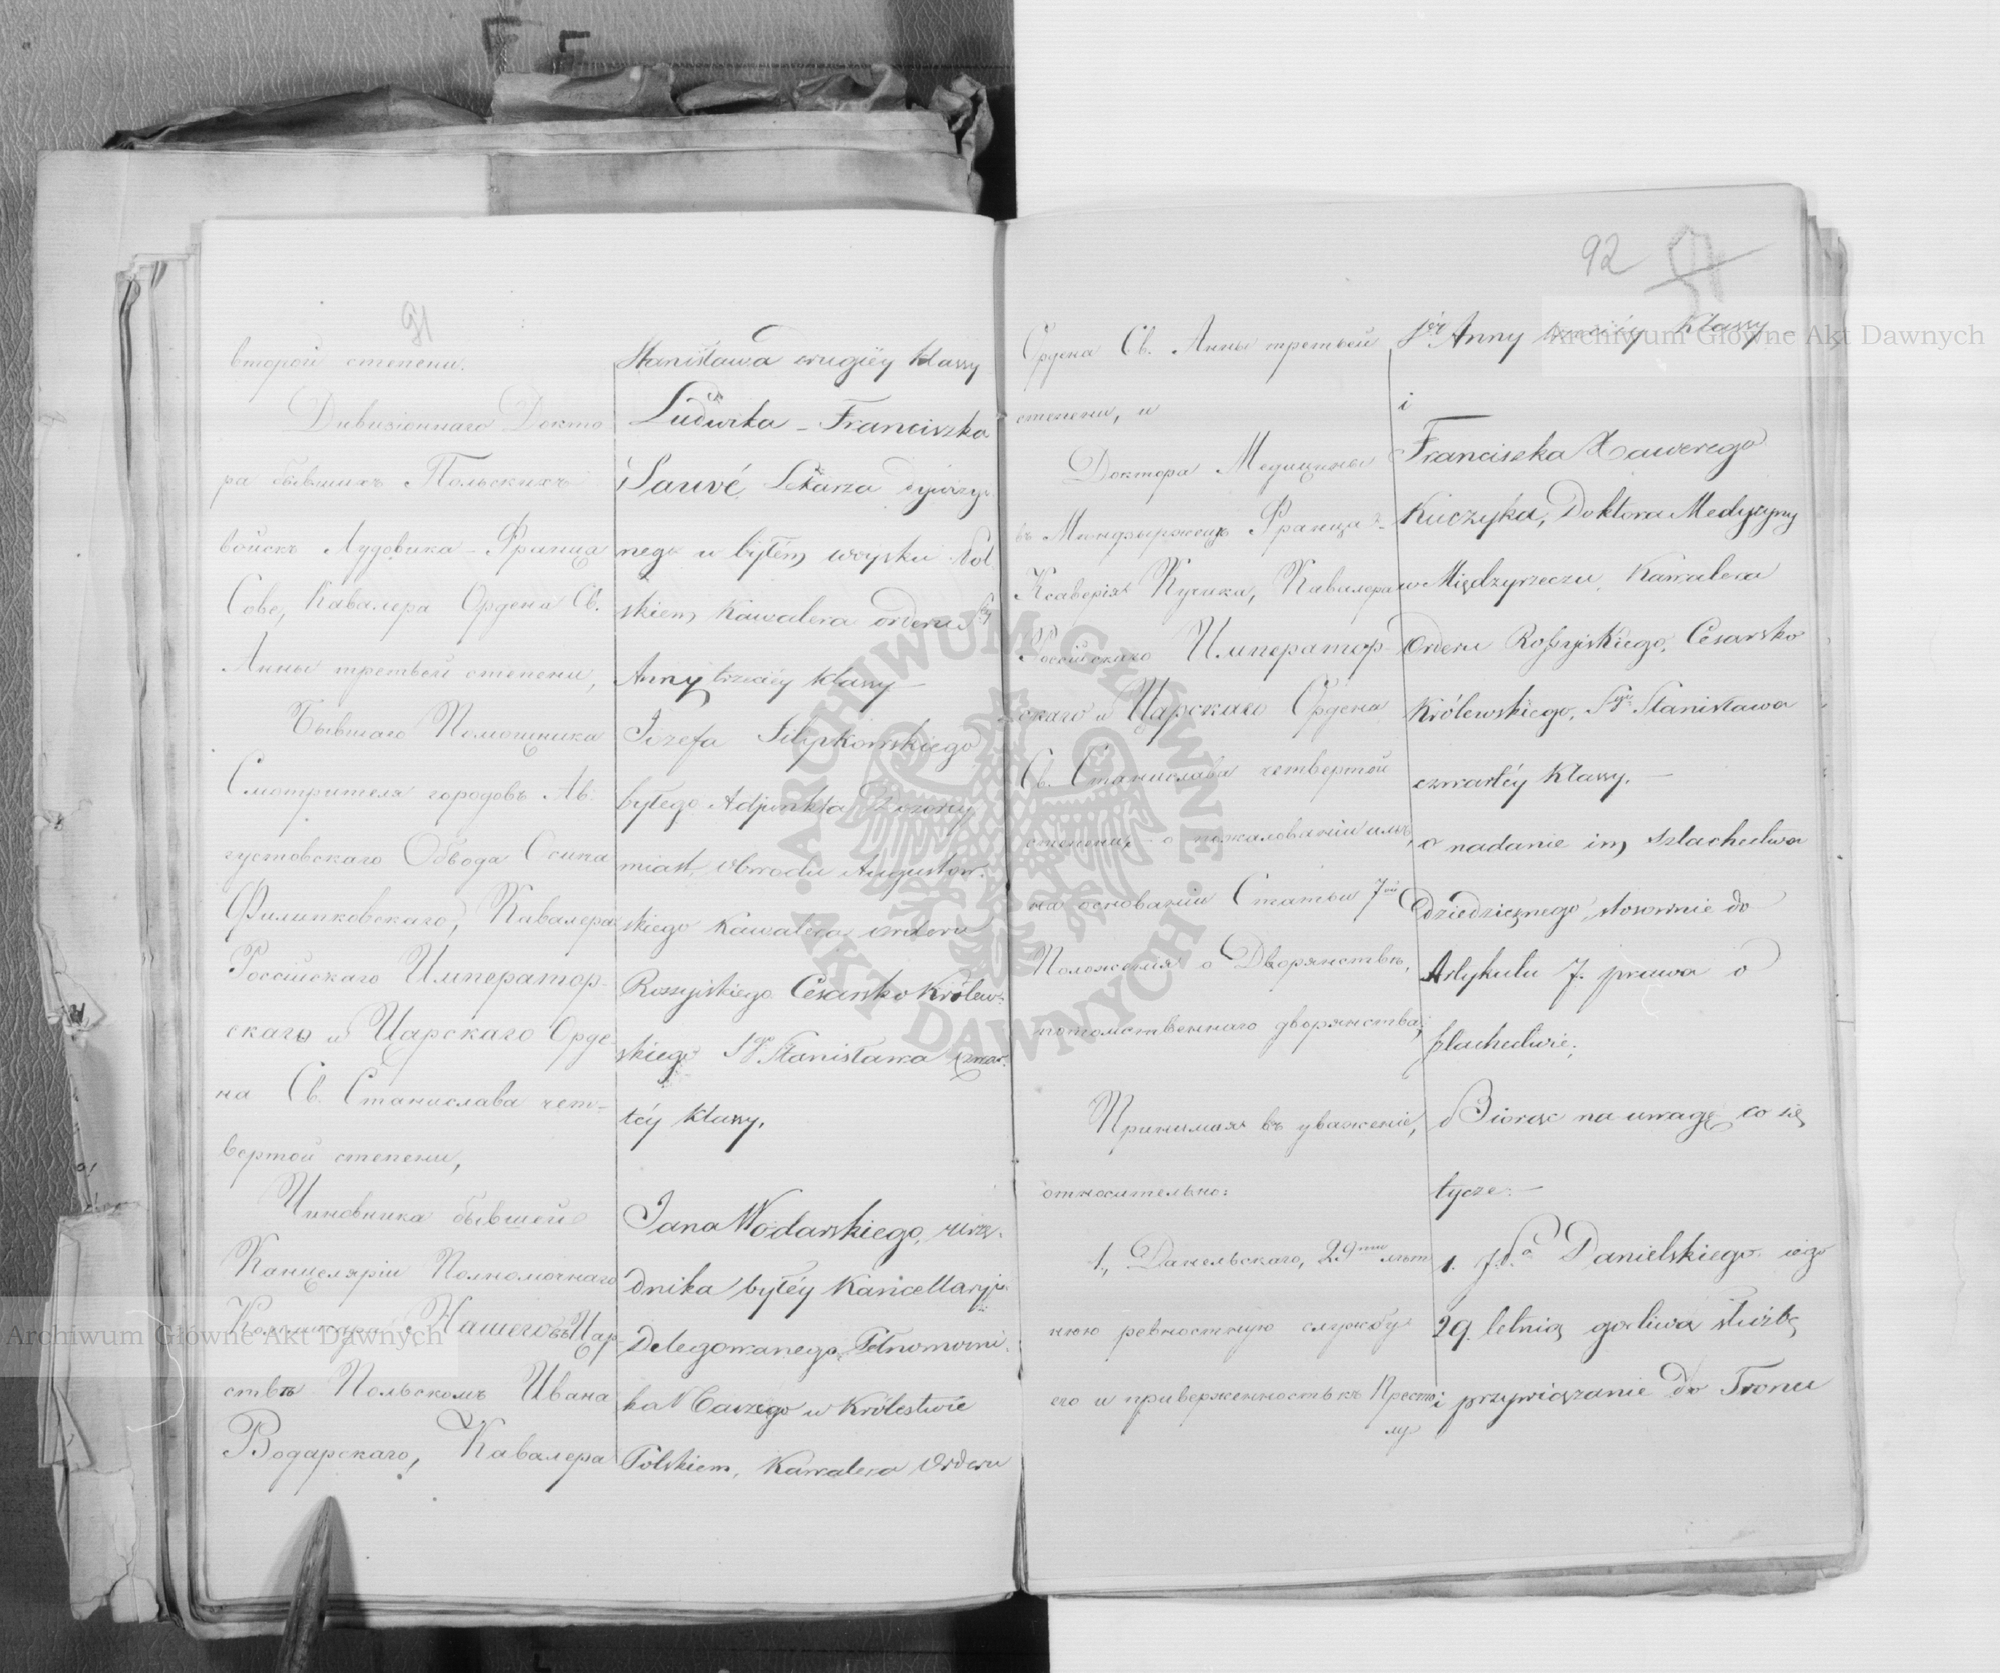 91
второй степени.
Дивизіоннаго Докто
ра бывшихъ Польскихъ
войскъ Лудовика-Франца
Сове, Кавалера Ордена Св.
Анны третьей степени,
Бывшаго Помощника
Смотрителя городовъ Ав
густовскаго Обвода Осипа
Филипковскаго, Кавалера
Россійскаго Император-
скаго и Царскаго Орде
на Св. Станислава чет-
вертой степени,
Чиновника бывшей
Канцеляріи Полномочнаго
Коммисара Нашего въ Цар
ствѣ Польскомъ Ивана
Водарскаго, Кавалера
Stanisława drugiéy klassy
Ludwika - Franciszka
Sauvé, Lekarza dywizyi
nego w byłém woysku Pol
skiem Kawalera orderu Sey
Anny trzeciéy klassy -
Józefa Filipkowskiego
byłego Adjunkta Dozorcy
miast Obwodu Augustow-
skiego Kawalera orderu
Rossyiskiego Cesarsko Królew-
skiego Sgo Stanisława czwar-
téy klassy.
Jana Wodarskiego, urzę-
dnika byłéy Kancellaryi
Delegowanego Pełnomocni
ka Naszego w Królestwie
Polskiem, Kawalera Orderu
92
Ордена Св. Анны третьей
степени, и
Доктора Медицины
въ Мендзыржецѣ Франца-
Ксаверія Кучика, Кавалера
Россійскаго Император-
скаго и Царскаго Ордена
Св. Станислава четвертой
степени, о пожалованіи имъ,
на основаніи Статьи 7й
Положенія о Дворянствѣ,
потомственнаго дворянства;
Принимая въ уваженіе,
относительно:
1, Данельскаго, 29ти лѣт
нюю ревностную службу
его и приверженность къ Престо
лу
Sėy Anny trzeciéy klassy
i
Franciszka Xawerego
Kuczyka, Doktora Medycyny
w Międzyrzeczu, Kawalera
Orderu Rossyjskiego, Cesarsko
Królewskiego, Sgo Stanisława
czwartéy klassy. -
o nadanie im szlachectwa
dziedzicznego, stosownie do
Artykułu 7. prawa o
szlachectwie;
Biorąc na uwagę co się
tycze: -
1. Danielskiego iego
29. letnią gorliwą służbę
i przywiązanie do Tronu
Archiwum Główne Akt Dawnych
Archiwum Główne Akt Dawnych
ARCHIWUM GŁÓWNE · AKT DAWNYCH ·